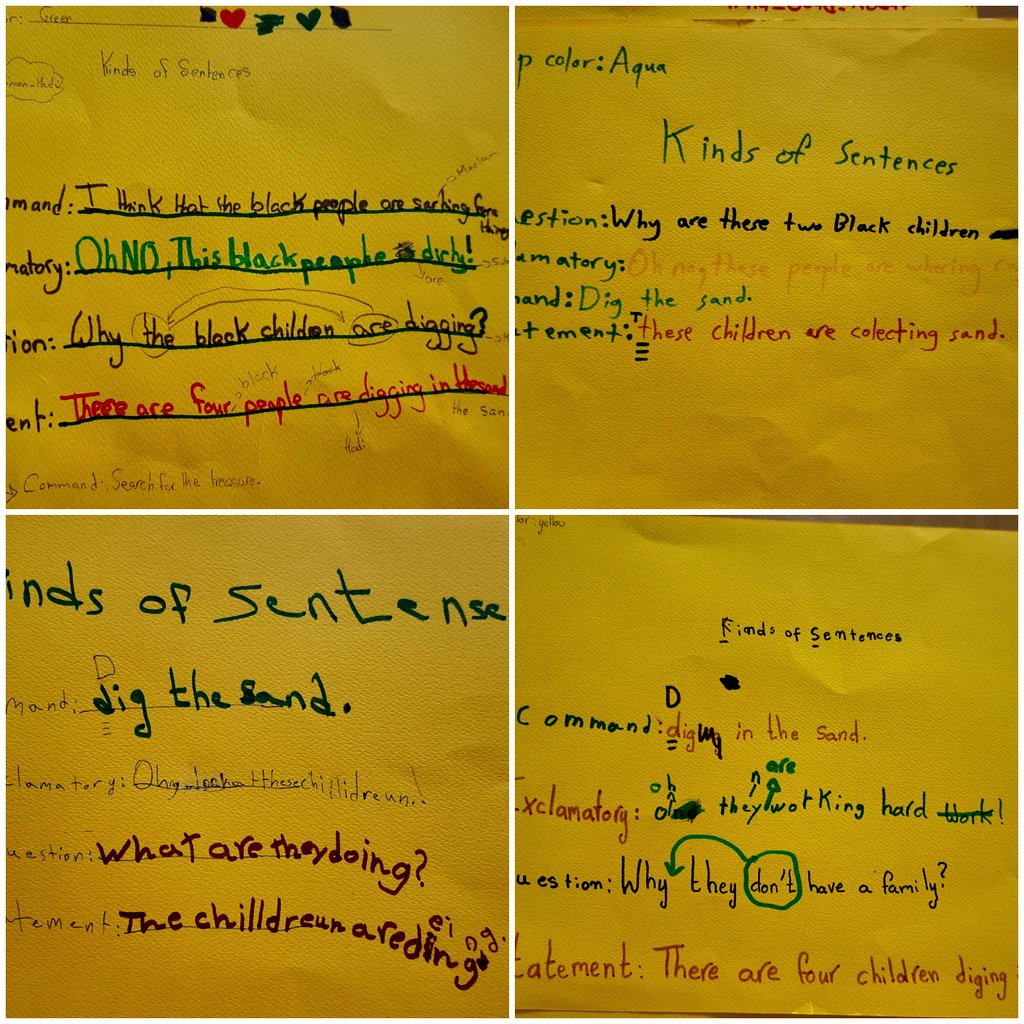 or: Green
Kinds of Sentences
man-Made
mmand: I think that the black people are serhing for a
thing
Mariam
matory: Oh NO, This black peaple dirty!
are
tion: Why the black children are digging?
black black
ent: There are four people are digging in the sand
the san
Hadi
Command: Search for the treasure.
p color: Aqua
Kinds of Sentences
estion: Why are these two Black children
amatory: Oh no, these people are
mand: Dig the sand.
T
atement: these children are colecting sand.
inds of Sentense
D
mand: dig the sand.
clamatory: Oh
uestion: What are they doing?
ei n g.
atement: The chilldreun are ding
or: yellow
Kinds of Sentences
D
Command: dig in the sand.
oh n are
Exclamatory: they working hard work!
uestion: Why they don't have a family?
tatement: There are four children diging